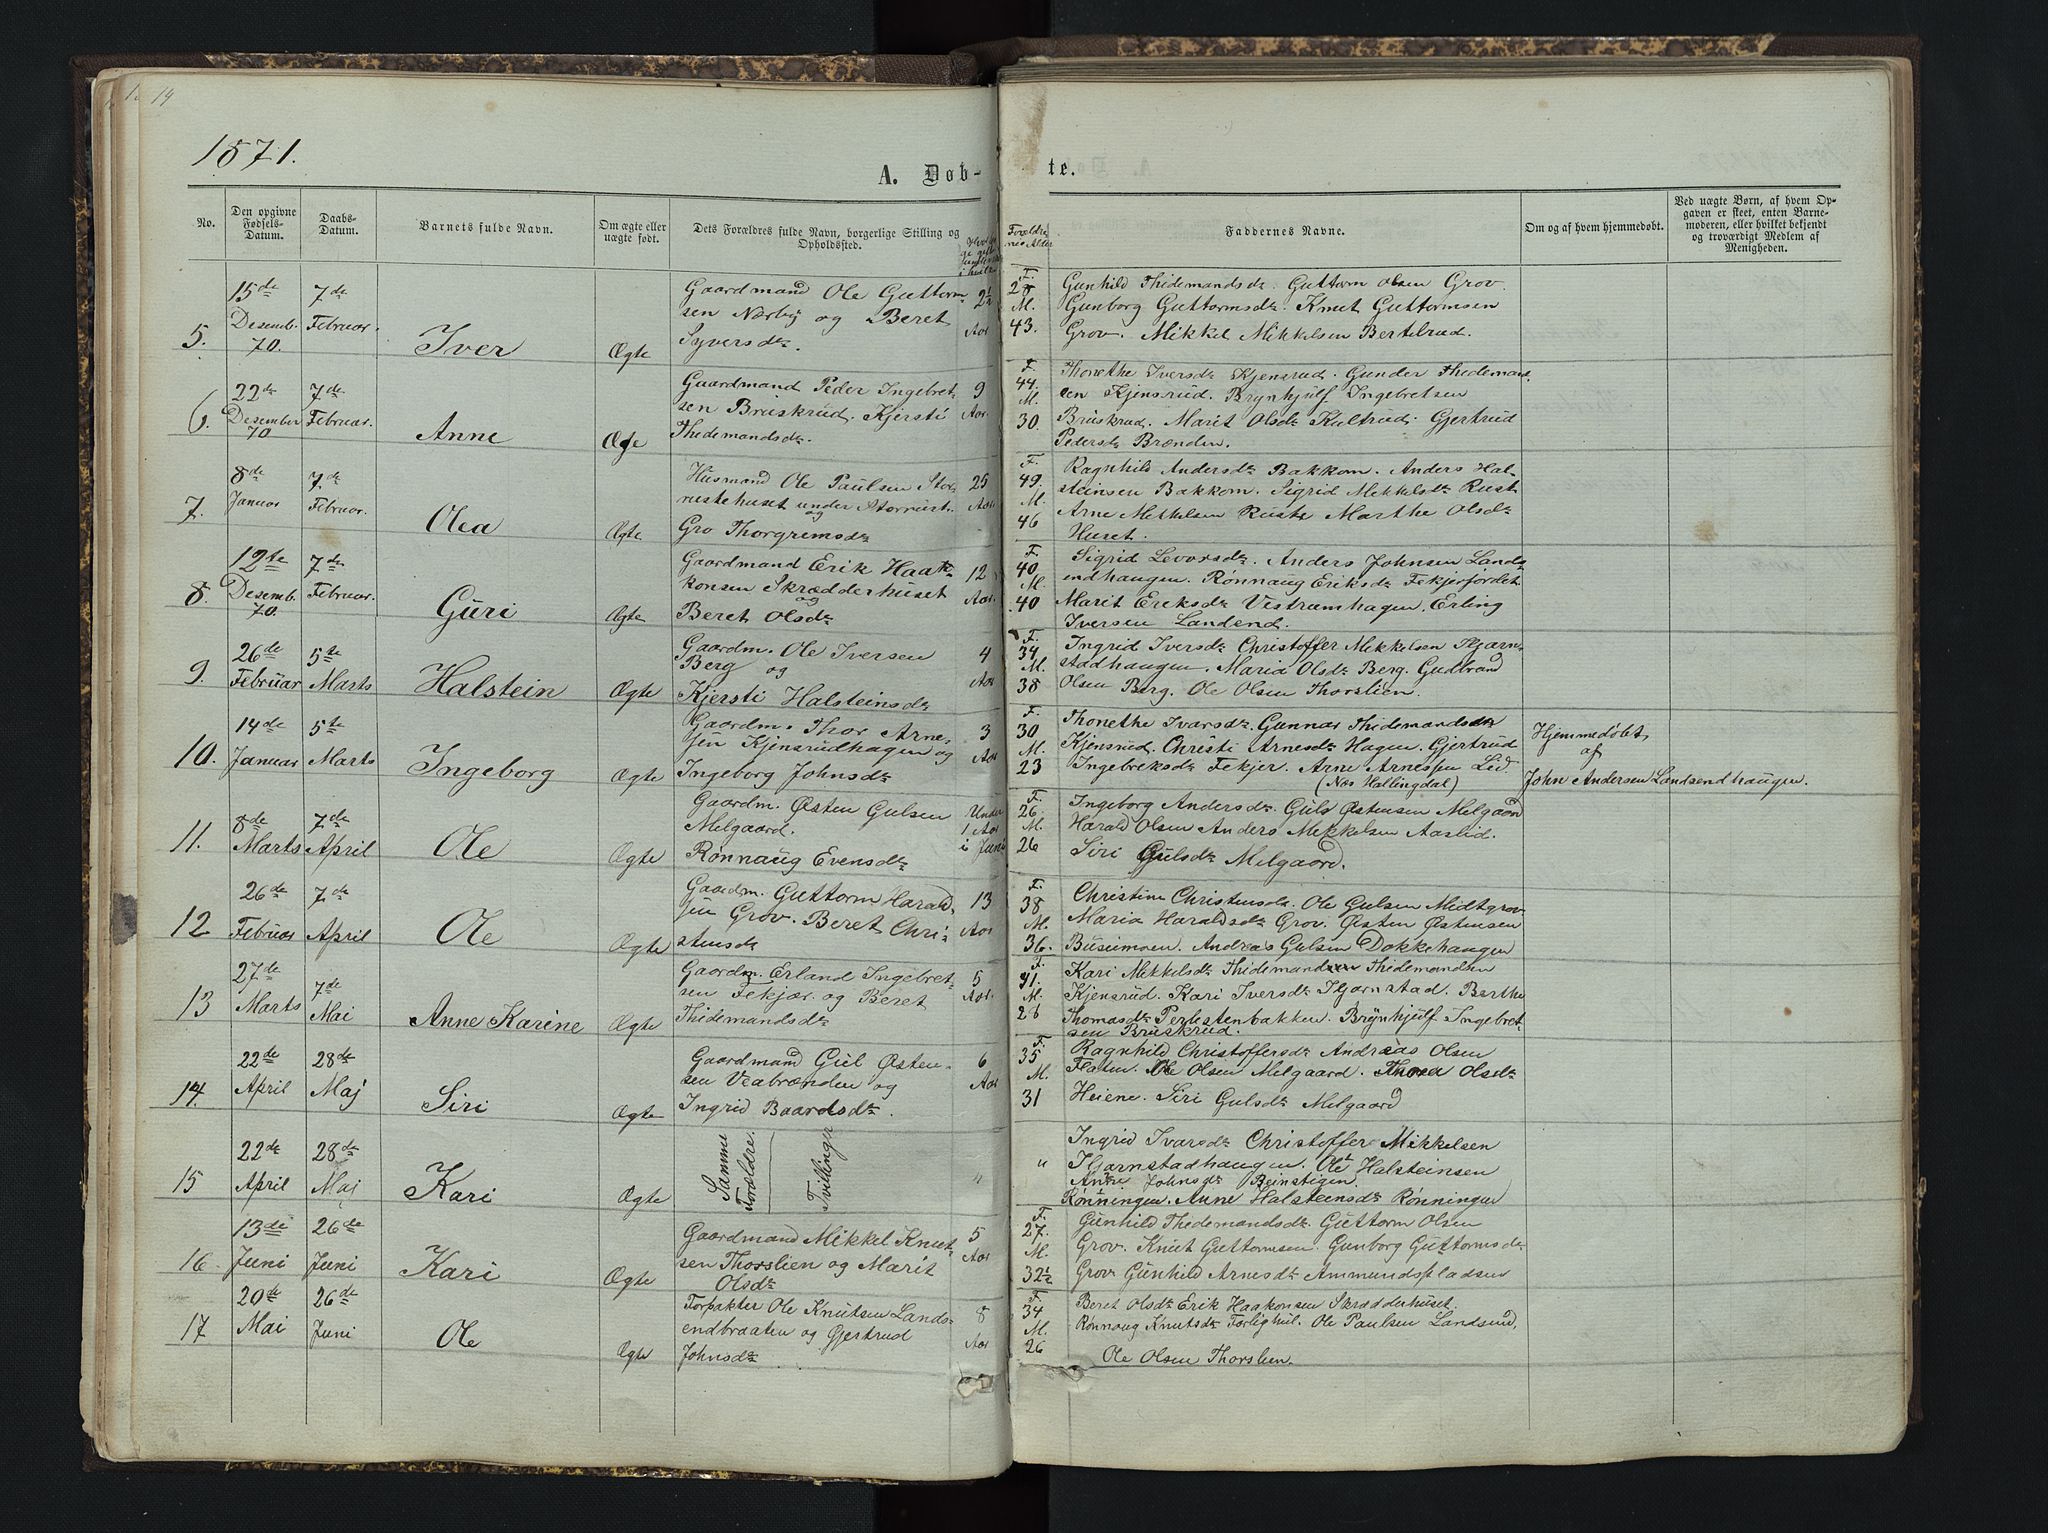 14
1871.
A. Døb-
te.
No.
Den opgivne Fødsels-Datum.
Daabs-Datum.
Barnets fulde Navn.
Om ægte eller uægte født.
Dets Forældres fulde Navn, borgerlige Stilling og Opholdssted.
Faddernes Navne.
Om og af hvem hjemmedøbt.
Ved uægte Børn, af hvem Opgaven er skeet, enten Barnemoderen, eller hvilket bekjendt og troværdigt Medlem af Menigheden.
5.
15de Desemb. 70.
7de Februar.
Iver
Ægte
Gaardmand Ole Guttorm-
sen Nørby og Beret
Syversdr.
2½ Aar
F. 28 M. 43.
Gunhild Thidemandsdr Guttorm Olsen Grov.
Gunborg Guttormsdr. Knut Guttormsen
Grov. Mikkel Mikkelsen Bertilrud.
6.
22de Desember 70
7de Februar.
Anne
Ægte
Gaardmand Peder Ingebret-
sen Bruskrud. Kjersti
Thidemandsdr.
9 Aar.
F. 44. M. 30.
Thonethe Iversdr Kjensrud. Gunder Thidemand-
sen Kjensrud. Brynhjulf Ingebretsen
Bruskrud. Marit Olsdr Kultrud. Gjertrud
Pedersdr Brænden.
7.
8de Januar
7de Februar.
Olea
Ægte
Husmand Ole Paulsen Stor-
rustehuset under Storrust.
og
Gro Thorgrimsdr
25 Aar.
F. 49. M. 46
Ragnhild Andersdr Bakkom. Anders Hal-
steinsen Bakkom. Sigrid Mikkelsdr Rust
Arne Mikkelsen Rust. Marthe Olsdr
Huset.
8.
12te Desemb. 70.
7de Februar.
Guri
Ægte
Gaardmand Erik Haak-
konsen Skrædderhuset
og
Beret Olsdr
12 Aar.
F. 40 M. 40
Sigrid Levorsdr. Anders Johnsen Lands-
endhaugen. Rønnaug Eriksdr Fekjerfördet
Marit Eriksdr Vestrumhagen. Erling
Iversen Landend.
9.
26de Februar
5te Marts
Halstein
Ægte
Gaardm. Ole Iversen
Berg og
Kjersti Halsteinsdr
4 Aar
F. 34 M. 38
Ingrid Iversdr Christoffer Mikkelsen Hjarn-
stadhaugen. Maria Olsdr Berg. Gudbrand
Olsen Berg. Ole Olsen Thorslien.
10.
14de Januar
5te Marts
Ingeborg
Ægte
Gaardm. Thor Arne-
sen Kjensrudhagen og
Ingeborg Johnsdr
3 Aar
F. 30 M. 23
Thonethe Ivarsdr. Gunnar Thidemandsdr
Kjensrud. Christi Arnesdr Hagen. Gjertrud
Ingebreksdr Fekjer. Arne Arnesen Lid
(Næs Hallingdal)
Hjemmedøbt
af
John Andersen Landsendhaugen.
11.
8de Marts
7de April
Ole
Ægte
Gaardm. Østen Gulsen
Melgaard.
Rønnaug Evensdr
Under 1 Aar
F. 26 M. 26
Ingeborg Andersdr. Guls Østensen Melgaard
Harald Olsen Anders Mikkelsen Aaslid.
Siri Gulsdr Melgaard.
12
26de Februar
7de April
Ole
Ægte
Gaardm. Guttorm Harald-
sen Grov. Beret Chri-
stensdr
13 Aar
F. 38 M. 36.
Christine Christensdr. Ole Gulsen Midtgrov
Maria Haraldsdr Grov. Østen Østensen
Busumoen. Andreas Gulsen Dokkehaugen
13
27de Marts
7de Mai
Anne Karine
Ægte
Gaardm. Erland Ingebret-
sen Fekjær. og Beret
Thidemandsdr
5 Aar.
F. 41. M. 28
Kari Mikkelsdr Thidemand Thidemandsen
Kjensrud. Kari Iversdr Hjarnstad. Berthe
Thomasdr Perlestenbakken. Brynhjulf Ingebret-
sen Bruskrud.
14.
22de April
28de Maj
Siri
Ægte
Gaardmand Gul Østen-
sen Veabrænden og
Ingrid Baardsdr.
6 Aar
F. 35 M. 31
Ragnhild Christoffersdr Andreas Olsen
Flaten. Ole Olsen Melgaard. Thorea Olsdr
Heiene. Siri Gulsdr Melgaard
15
22de April
28de Maj
Kari
Ægte
Samme Forældre.
Tvillinger
"
"
Ingrid Ivarsdr Christoffer Mikkelsen
Hjarnstadhaugen. Ole Halsteinsen
Anne Johnsdr Beinstigen.
Rønningen. Anne Halsteinsdr Rønningen
16
13de Juni
26de Juni
Kari
Ægte
Gaardmand Mikkel Knut-
sen Thorslien og Marit
Olsdr
5 Aar
F. 27. M. 32½
Gunhild Thidemandsdr. Guttorm Olsen
Grov. Knut Guttormsen. Gunborg Guttormsdr
Grov Gunhild Arnesdr Ammundspladsen
17
20de Mai
26de Juni
Ole
Ægte
Forpakter Ole Knutsen Lands-
endbraaten og Gjertrud
Johnsdr
8 Aar
F. 34 M. 26
Beret Olsdr Erik Haakonsen Skrædderhuset.
Rønnaug Knutsdr Ole Paulsen Landsend,
Ole Olsen Thorslien.